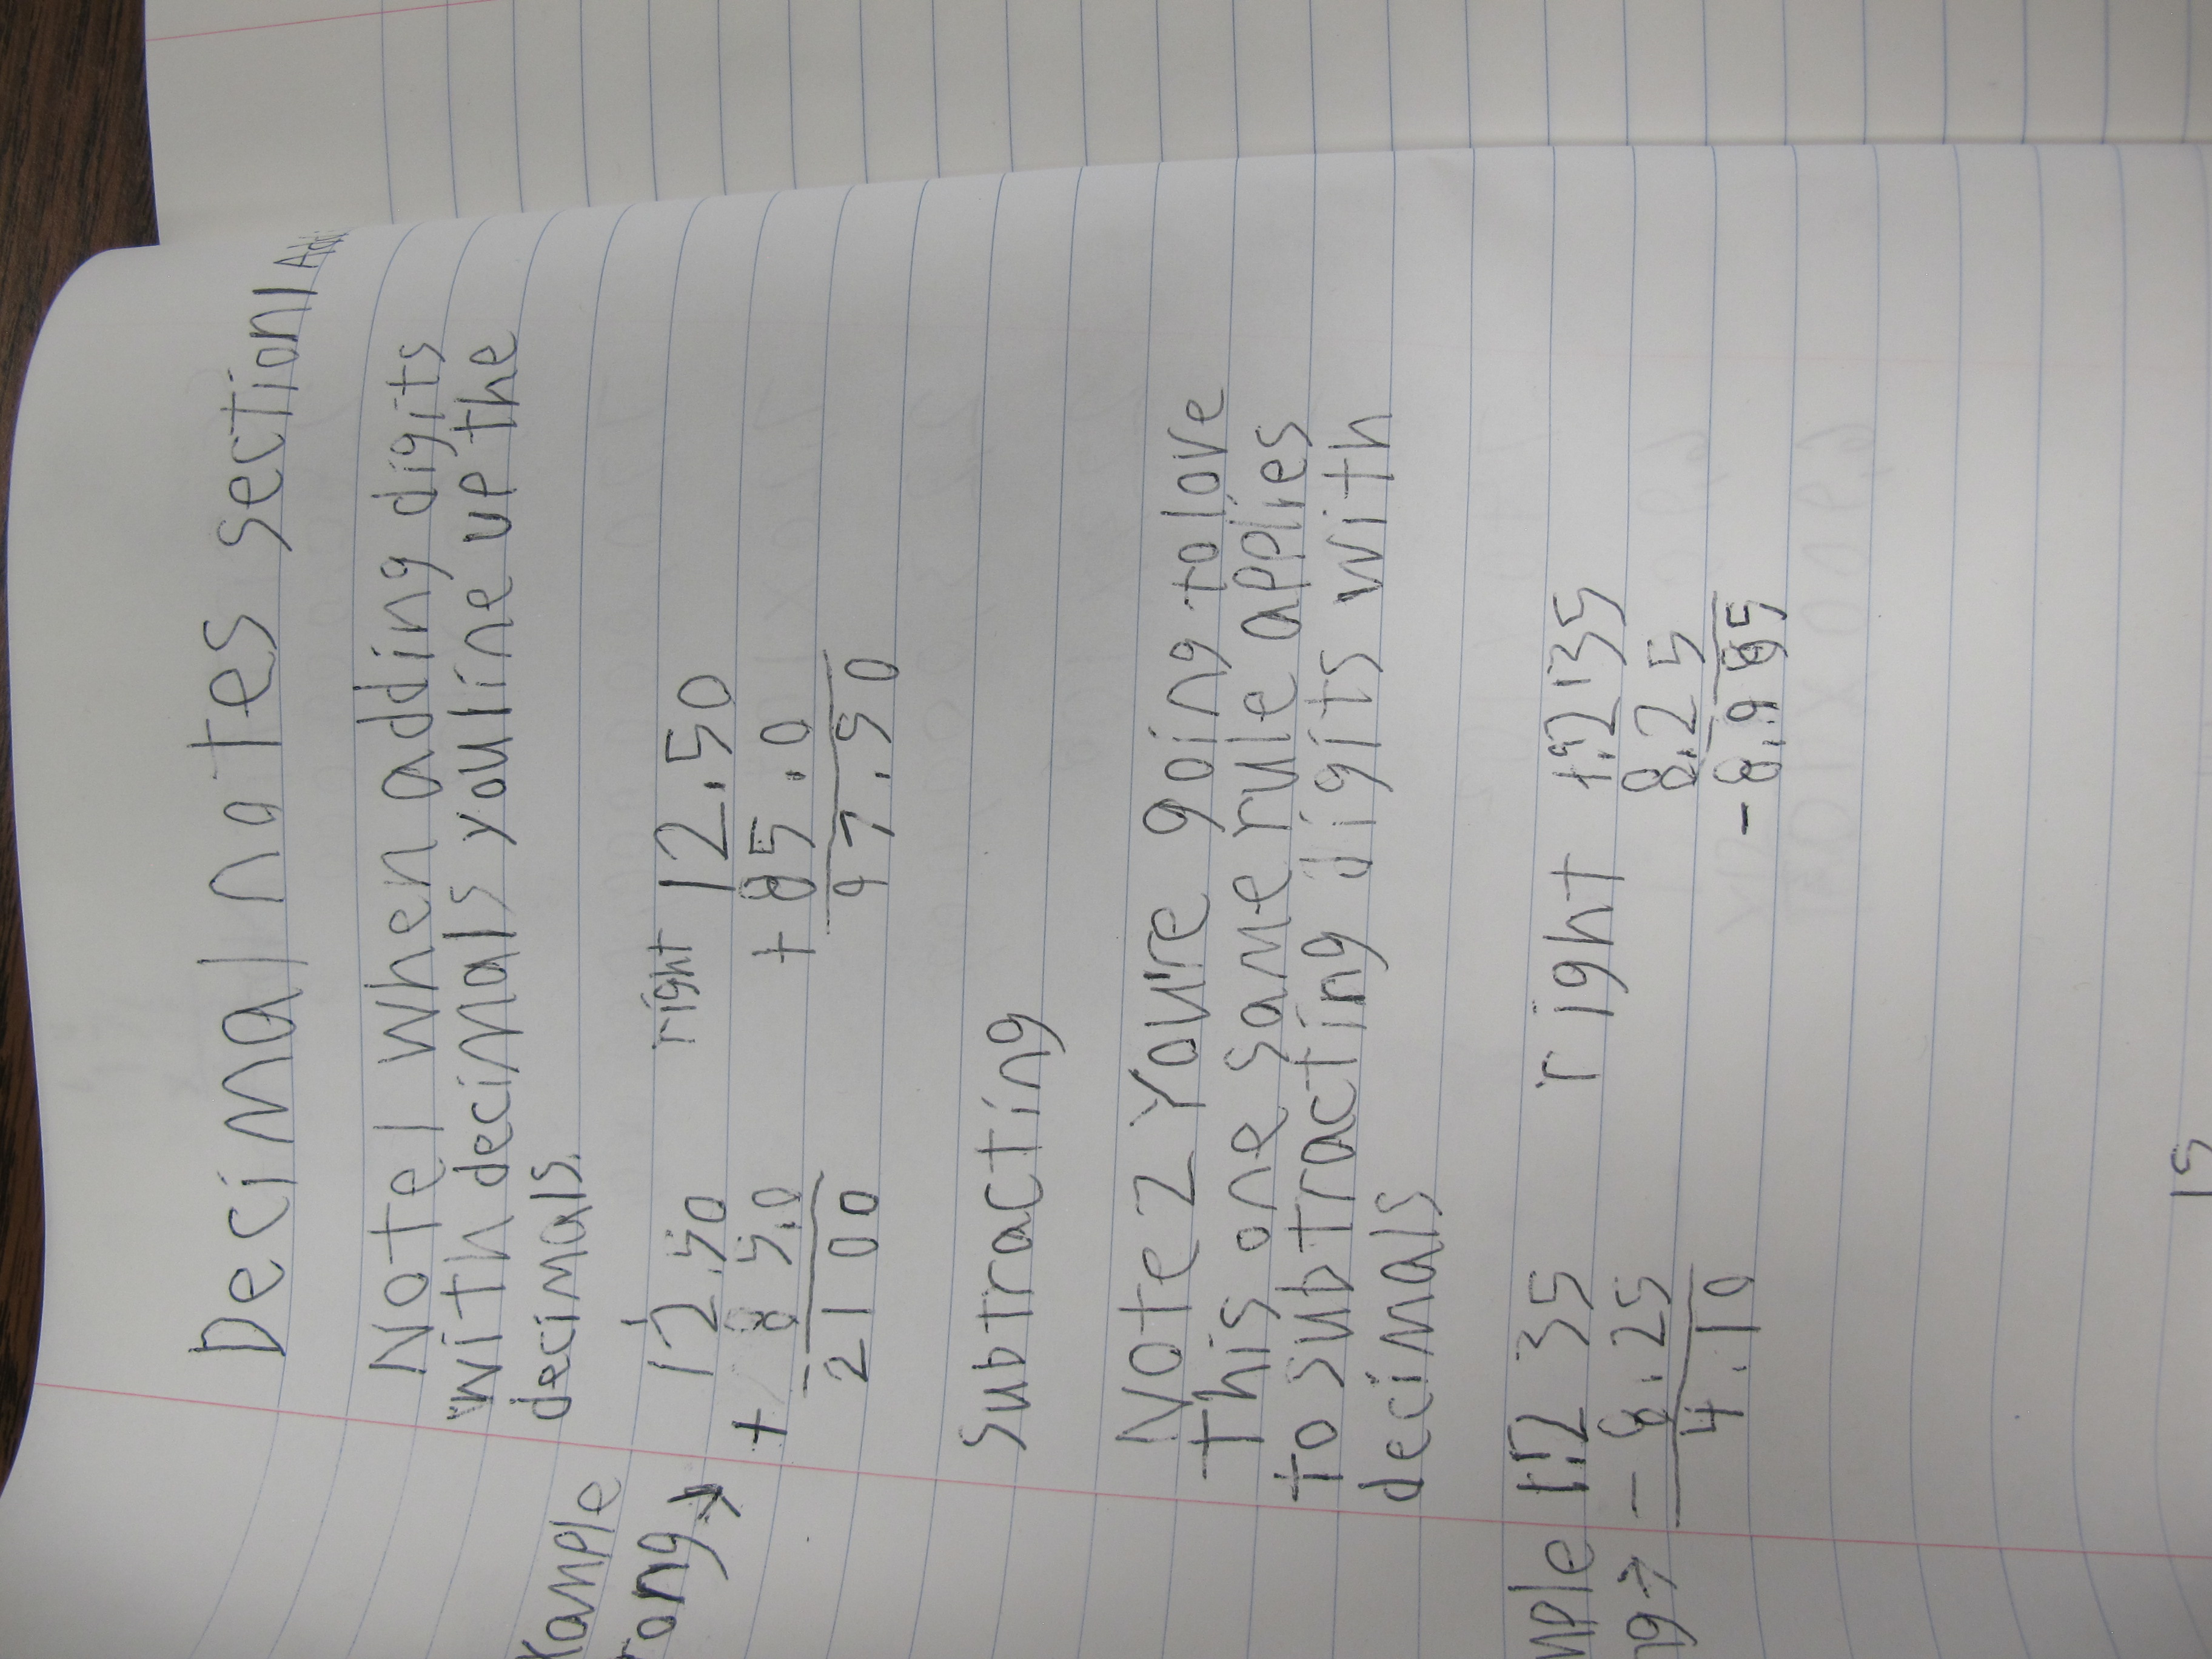 Decimal notes section 1
Note 1 When adding digits
with decimals you line up the
decimals.
xample
rong→ 12.50 right 12.50
+ 8 5.0 + 85.0
2100 97.50
Subtracting
Note 2 Youre going to love
this one same rule applies
to subtracting digits with
decimals
mple 35 right
ng→ - 8.25 8.25
4.10
15